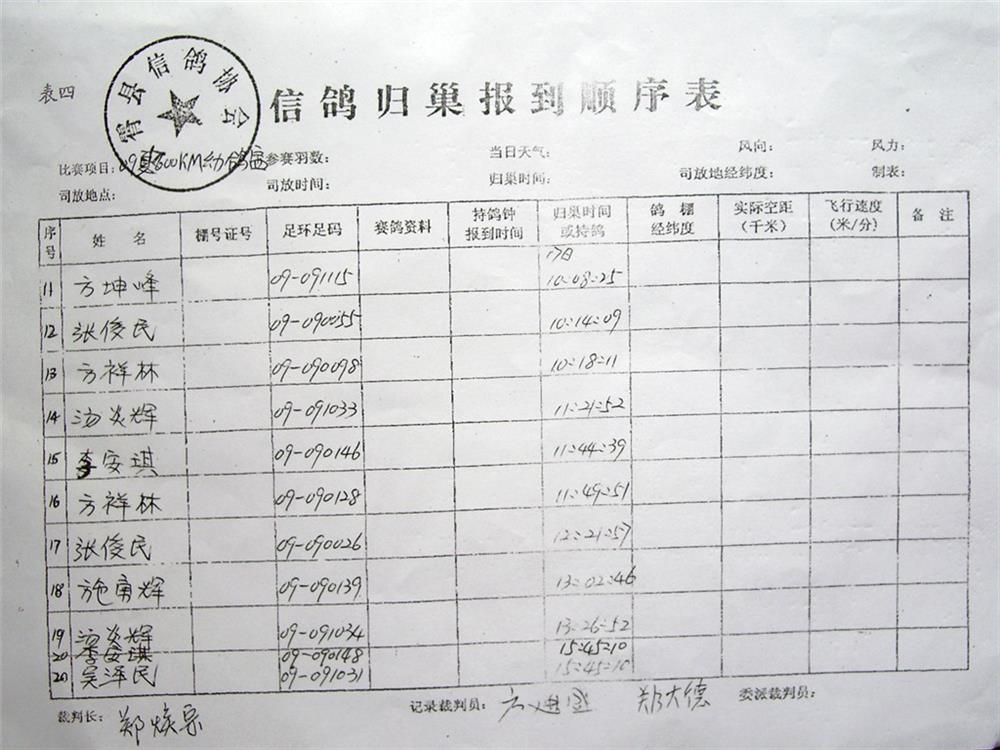 霄县信鸽协会
表四
信鸽归巢报到顺序表
比赛项目：09夏500KM幼鸽赛 参赛羽数： 当日天气： 风向： 风力：
司放地点： 司放时间： 归巢时间： 司放地经纬度： 制表：
序号 姓名 棚号证号 足环足码 赛鸽资料 持鸽钟报到时间 归巢时间或持鸽 鸽棚经纬度 实际空距（千米） 飞行速度（米/分） 备注
17日
11 方坤峰 09-091115 10:08:25
12 张俊民 09-090055 10:14:09
13 方祥林 09-090098 10:18:11
14 汤炎辉 09-091033 11:21:52
15 李安琪 09-090146 11:44:39
16 方祥林 09-090128 11:49:51
17 张俊民 09-090026 12:21:57
18 施勇辉 09-090139 13:02:46
19 汤炎辉 09-091034 13:26:52
20 李安琪 09-090148 15:45:10
20 吴泽民 09-091031 15:45:10
裁判长： 郑焕 记录裁判员： 方 郑大德 委派裁判员：